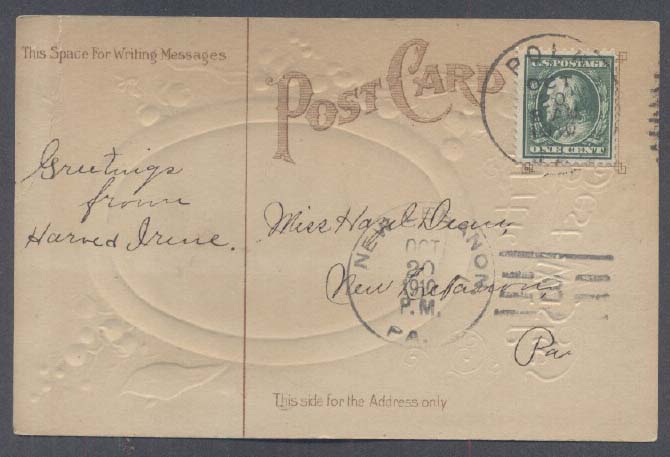 This Space For Writing Messages
POST CARD
POL
OCT
U.S. POSTAGE
ONE CENT
Greetings
from
Harve & Irene.
Miss Hazel
New Lebanon,
Pa
NEW LEBANON
OCT
20
1910
P.M.
PA.
Best Wishes
This side for the Address only